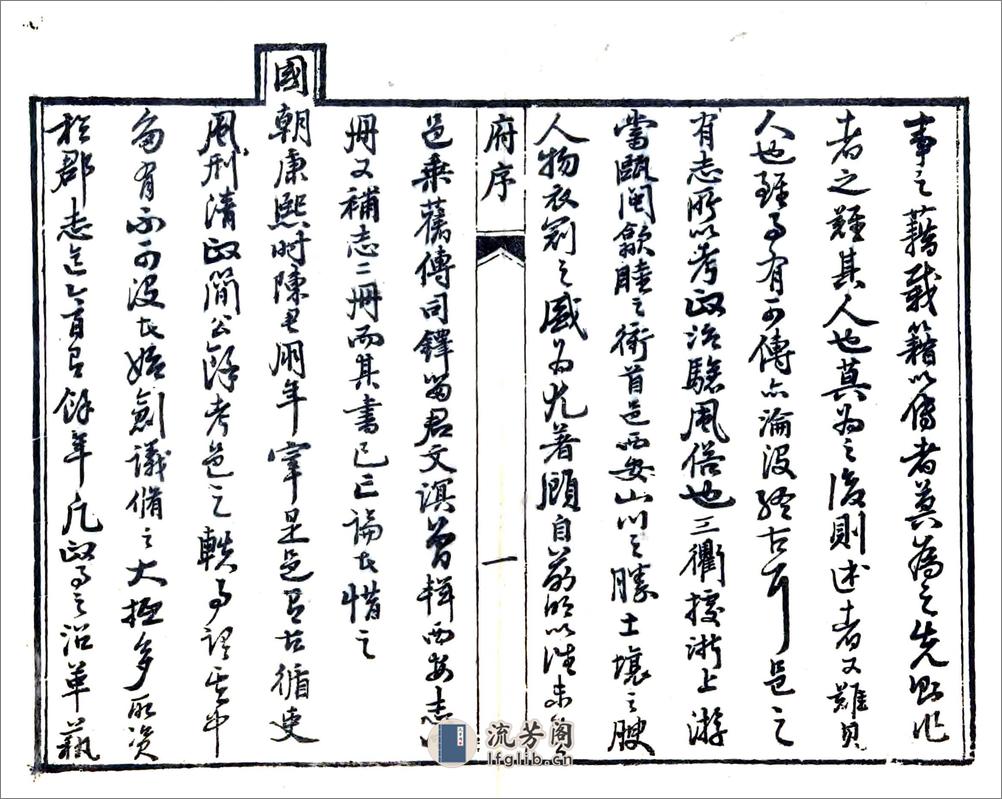 事之藉載籍以傳者莫為之先則作
者之難其人也莫為之後則述者又難其
人也雖事有可傳亦淪沒終古耳邑之
有志所以考政治驗風俗也三衢據浙上游
當甌閩歙睦之衝首邑西安山川之勝土壤之腴
人物衣冠之盛為尤著顧自前明以往未
府序
一
邑乘舊傳司鐸留君文溟曾輯西安志
冊又補志二冊而其書已亡論者惜之
國朝康熙時陳君鵬年宰是邑有古循吏
風刑清政簡公餘考邑之軼事
有不可沒者始創議修之大抵多取資
於郡志迄今百有餘年凡政事之沿革藝
流芳閣
lfglib.cn